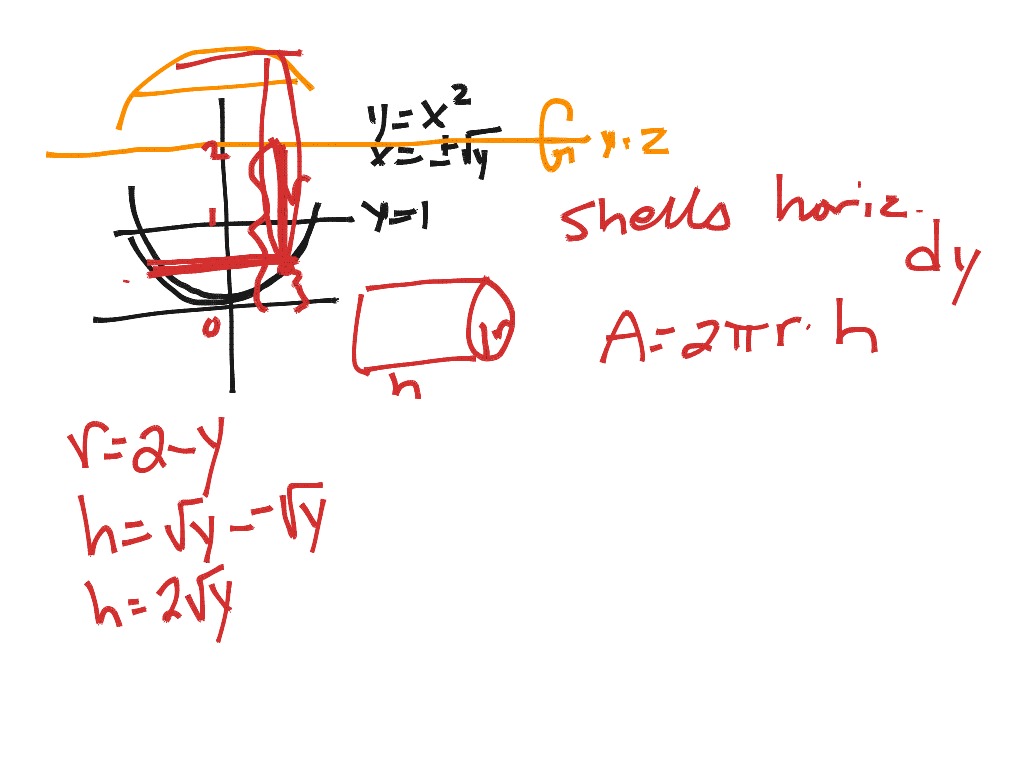 y=x²
x=±√y
y=2
2
1
y=1
0
shells horiz.
dy
r
r
h
A=2πr·h
r=2-y
h=√y--√y
h=2√y